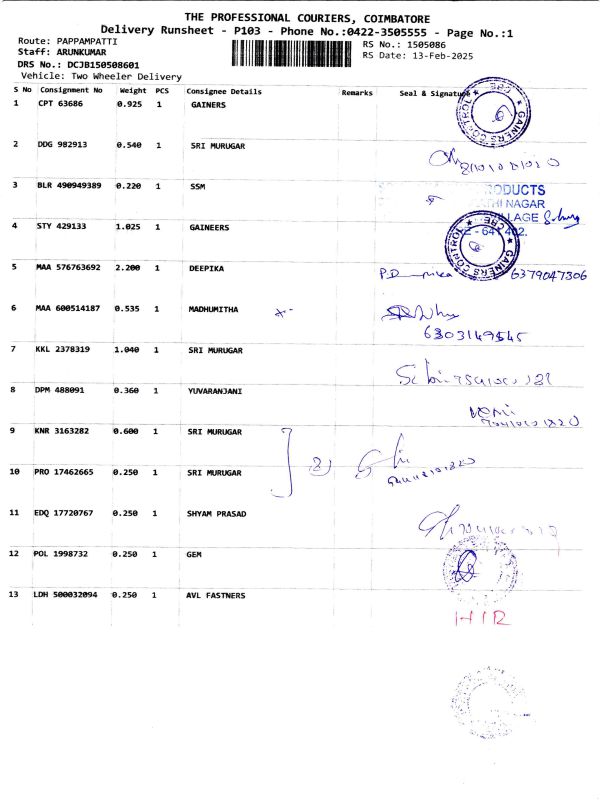 THE PROFESSIONAL COURIERS, COIMBATORE
Delivery Runsheet - P103 - Phone No.:0422-3505555 - Page No.:1
Route: PAPPAMPATTI
RS No.: 1505086
Staff: ARUNKUMAR
RS Date: 13-Feb-2025
DRS No.: DCJB150508601
Vehicle: Two Wheeler Delivery
S No Consignment No Weight PCS Consignee Details Remarks Seal & Signature
1 CPT 63686 0.925 1 GAINERS
GAINERS CONTROL
2 DDG 982913 0.540 1 SRI MURUGAR
3 BLR 490949389 0.220 1 SSM
RODUCTS
NAGAR
LAGE
4 STY 429133 1.025 1 GAINEERS
GAINERS CONTROL
5 MAA 576763692 2.200 1 DEEPIKA
6379047306
6 MAA 600514187 0.535 1 MADHUMITHA
7 KKL 2378319 1.040 1 SRI MURUGAR
8 DPM 488091 0.360 1 YUVARANJANI
9 KNR 3163282 0.600 1 SRI MURUGAR
10 PRO 17462665 0.250 1 SRI MURUGAR
11 EDQ 17720767 0.250 1 SHYAM PRASAD
12 POL 1998732 0.250 1 GEM
13 LDH 500032094 0.250 1 AVL FASTNERS